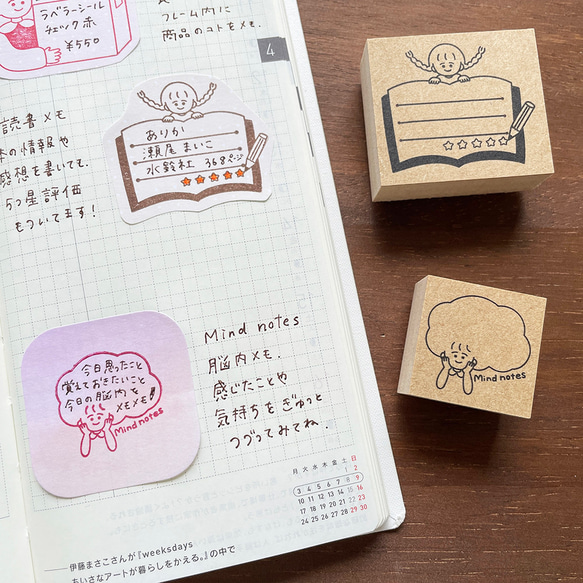 ラベラーシール
チェック赤
¥550
フレーム内に
商品のコトをメモ.
4
読書メモ
本の情報や
感想を書いても.
5つ星評価
もついてます!
ありか
瀬尾まいこ
水鈴社 368ページ
Mind notes
脳内メモ.
感じたことや
気持ちをぎゅっと
つづってみてね.
今日思ったこと
覚えておきたいこと
今日の脳内を
メモメモ!
Mind notes
月 火 水 木 金 土 日
1 2
3 4 5 6 7 8 9
10 11 12 13 14 15 16
17 18 19 20 21 22 23
24 25 26 27 28 29 30
伊藤まさこさんが『weeksdays
ちいさなアートが暮らしをかえる。』の中で
Mind notes